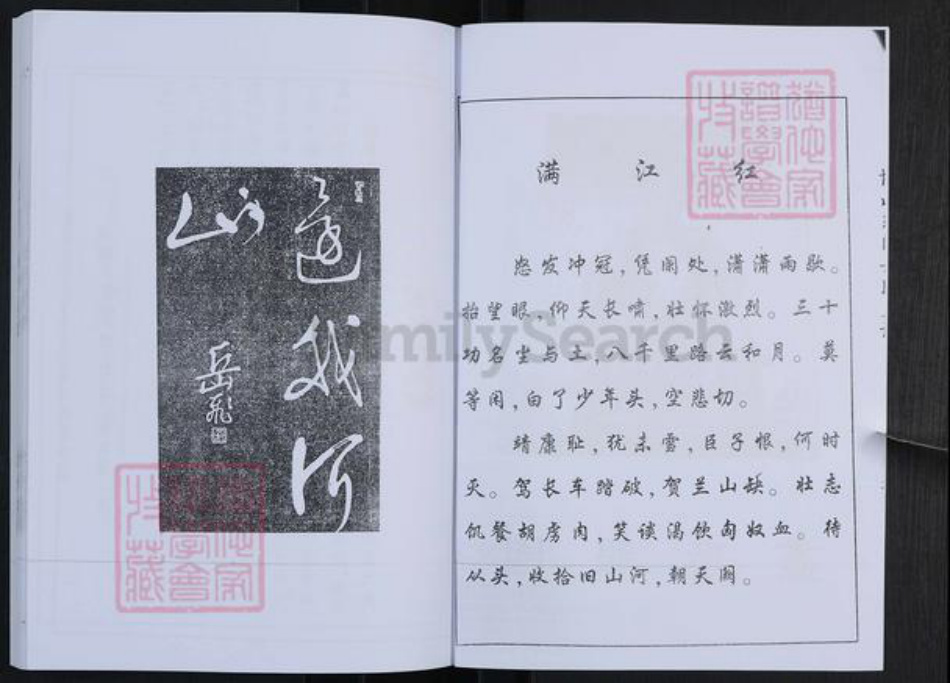 还我河
山
岳飞
满江红
怒发冲冠,凭阑处,潇潇雨歇。
抬望眼,仰天长啸,壮怀激烈。三十
功名尘与土,八千里路云和月。莫
等闲,白了少年头,空悲切。
靖康耻,犹未雪,臣子恨,何时
灭。驾长车踏破,贺兰山缺。壮志
饥餐胡虏肉,笑谈渴饮匈奴血。待
从头,收拾旧山河,朝天阙。
FamilySearch
猶他家
譜學會
收藏